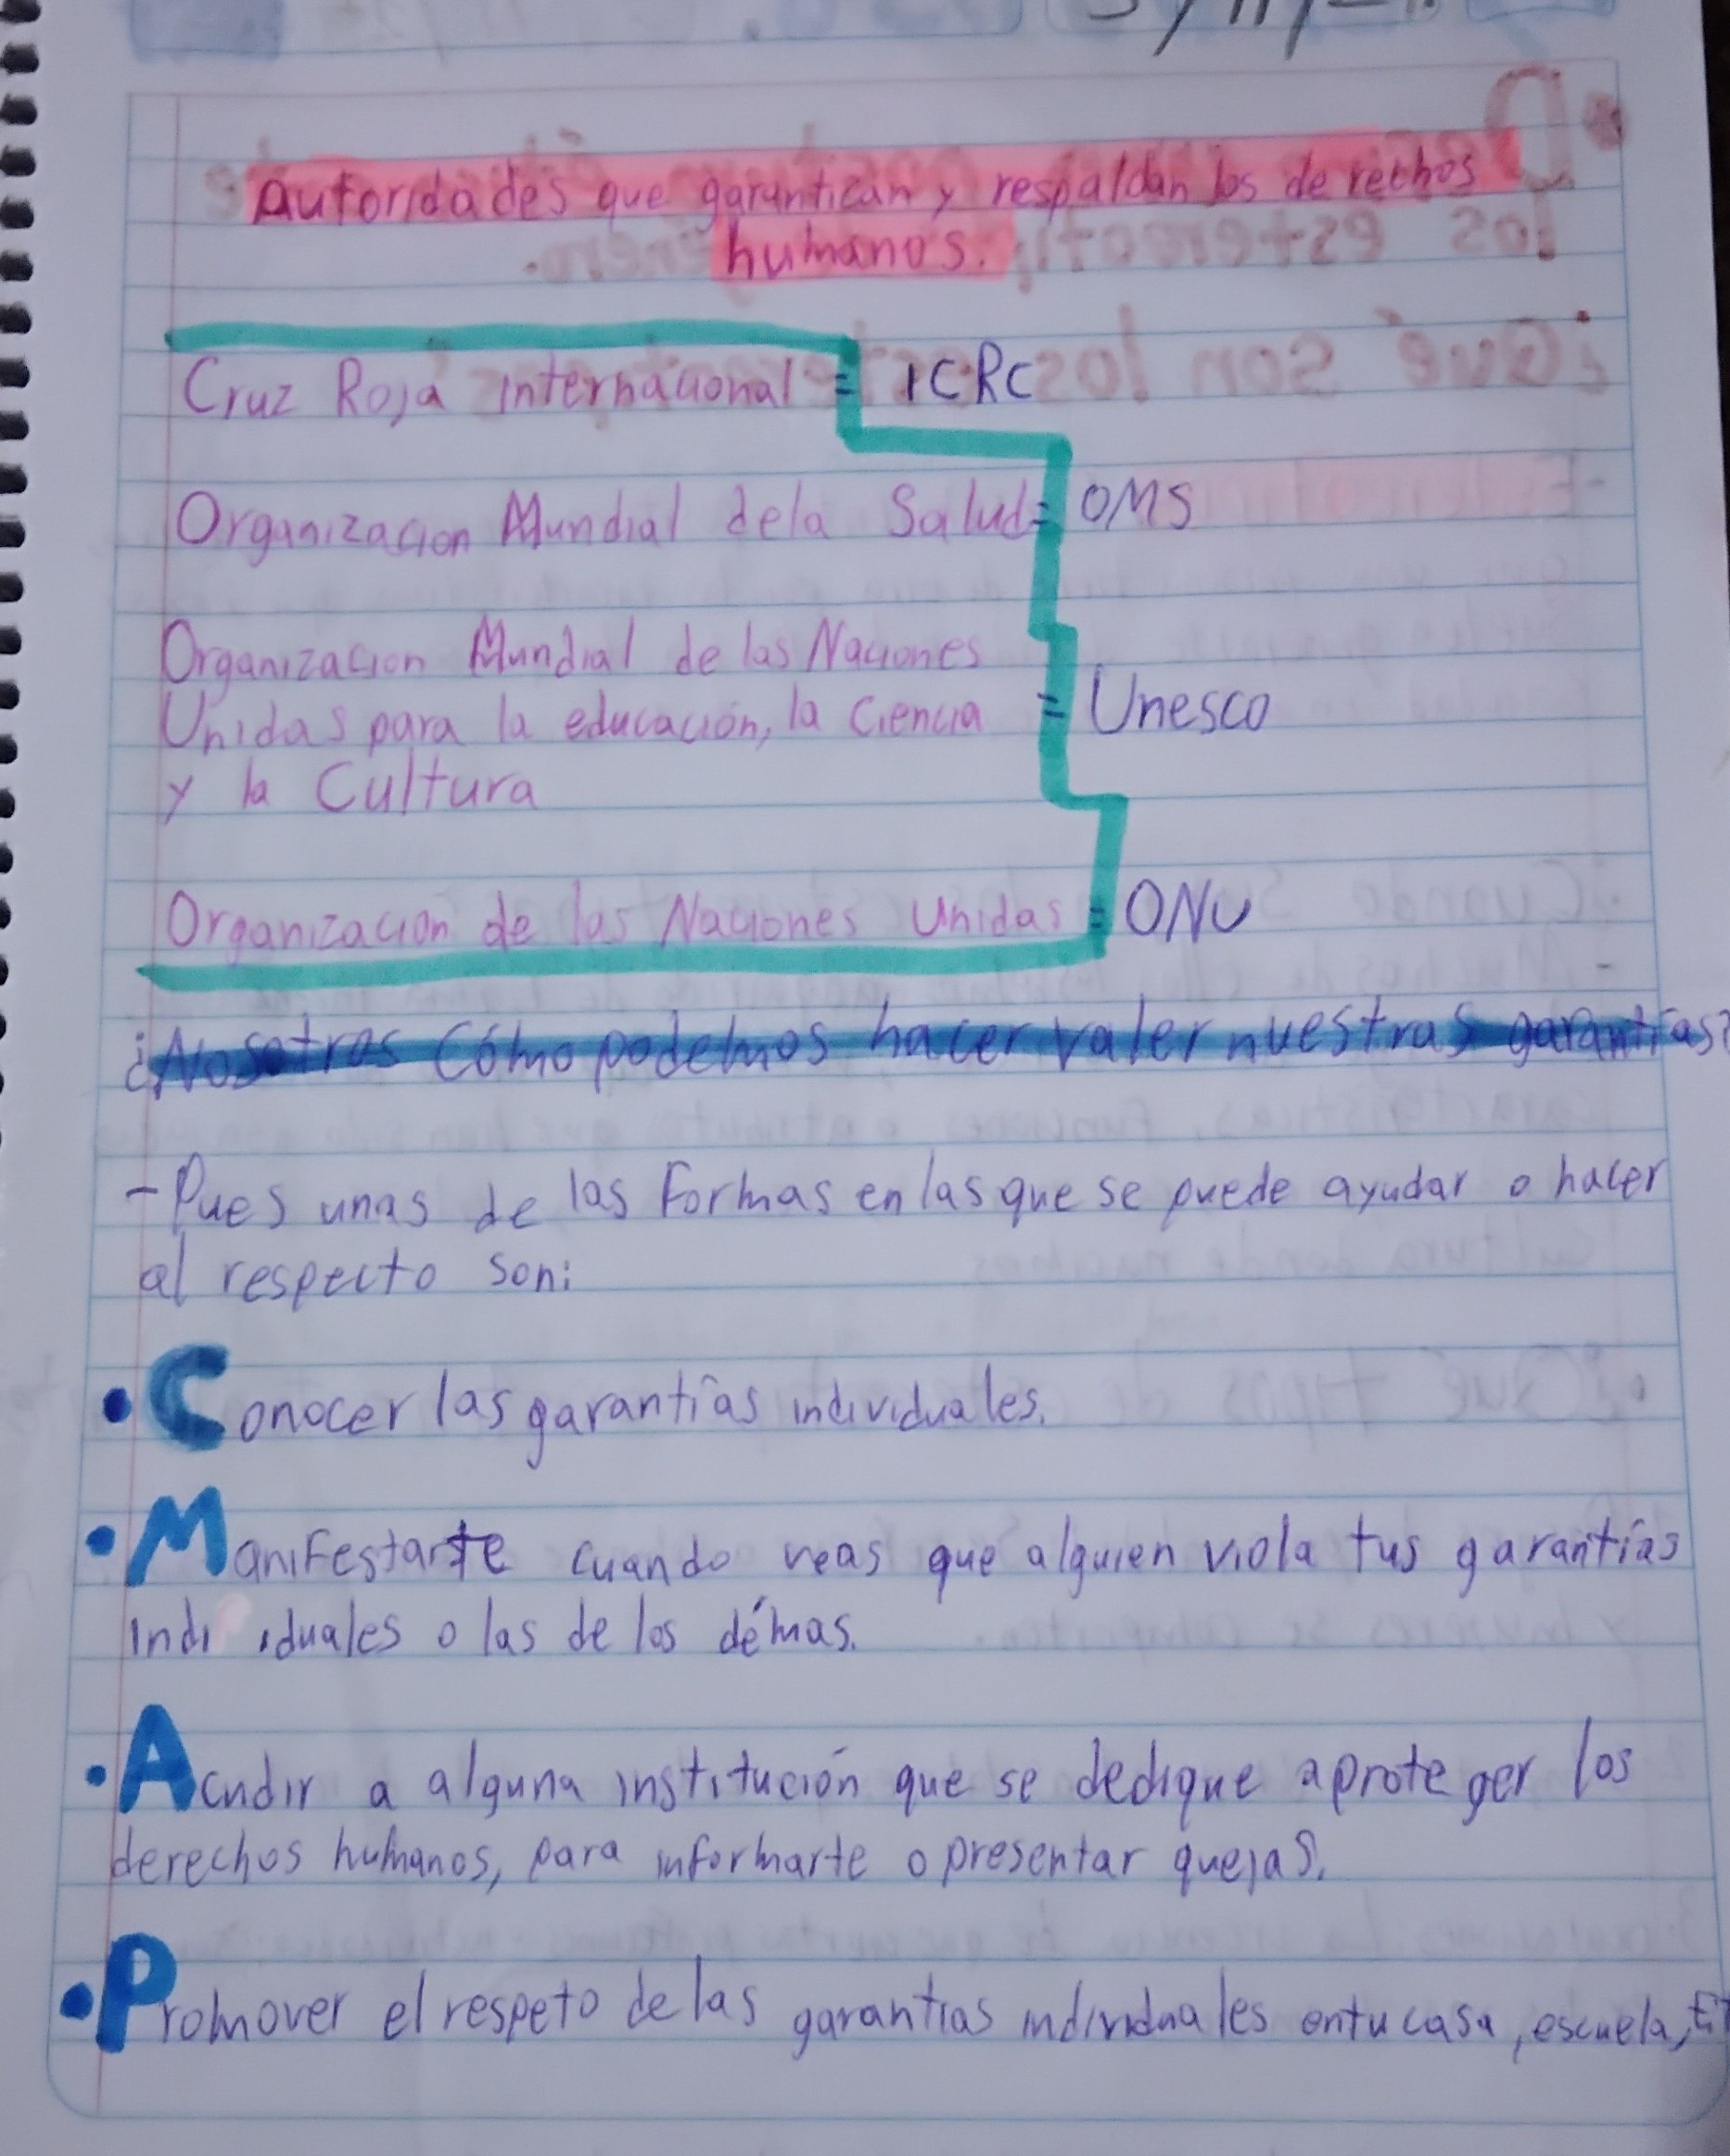 Autoridades que garantican y respaldan los derechos
humanos.
Cruz Roja Internacional = ICRC
Organizacion Mundial dela Salud = OMS
Organizacion Mundial de las Naciones
Unidas para la educación, la Ciencia = Unesco
y la Cultura
Organización de las Naciones Unidas = ONU
¿Nosotros Cómo podemos hacer valer nuestras garantías?
- Pues unas de las Formas en las que se puede ayudar o hacer
al respecto son:
• Conocer las garantías individuales.
• Manifestarte cuando veas que alguien viola tus garantías
indi iduales o las de los démas.
• Acudir a alguna institución que se dedique a proteger los
derechos humanos, para informarte o presentar quejas.
• Promover el respeto de las garantías individuales en tu casa, escuela,